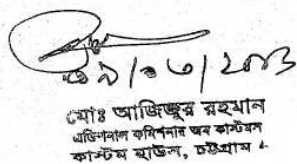 মোঃ আজিজুর রহমান
এডিশনাল কমিশনার অব কাস্টমস
কাস্টম হাউস, চট্টগ্রাম ৷